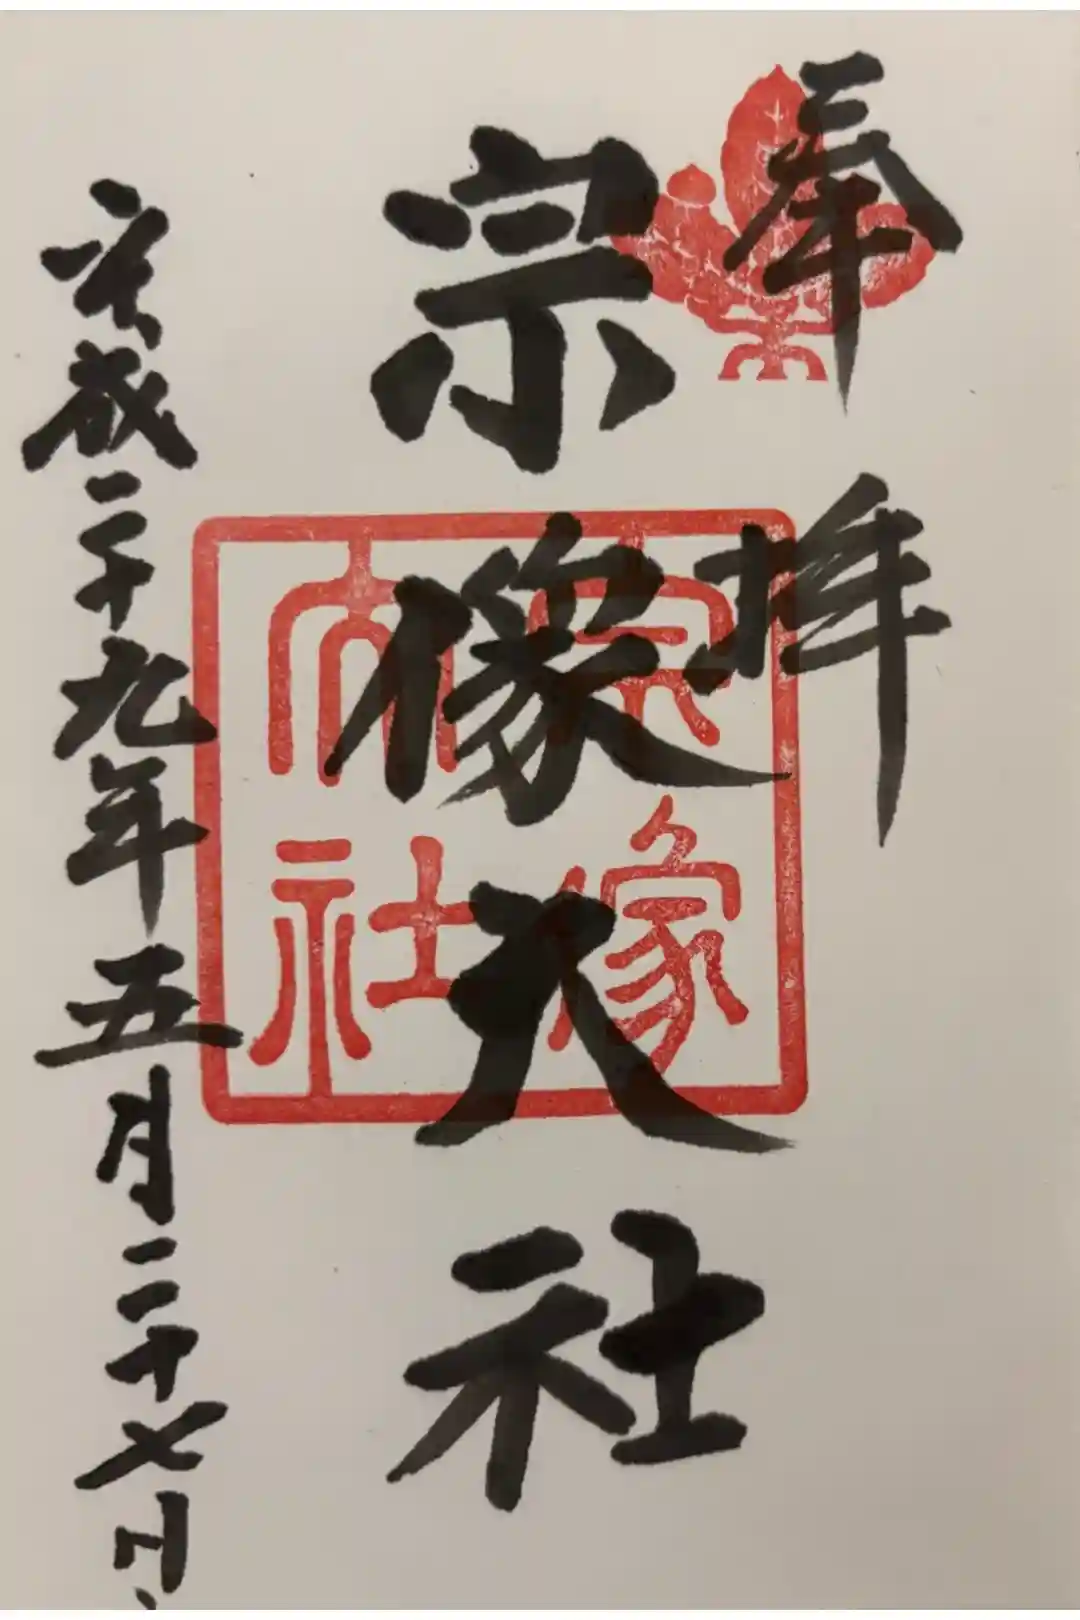 奉拝
宗像大社
平成二十九年五月二十七日
宗像
大社